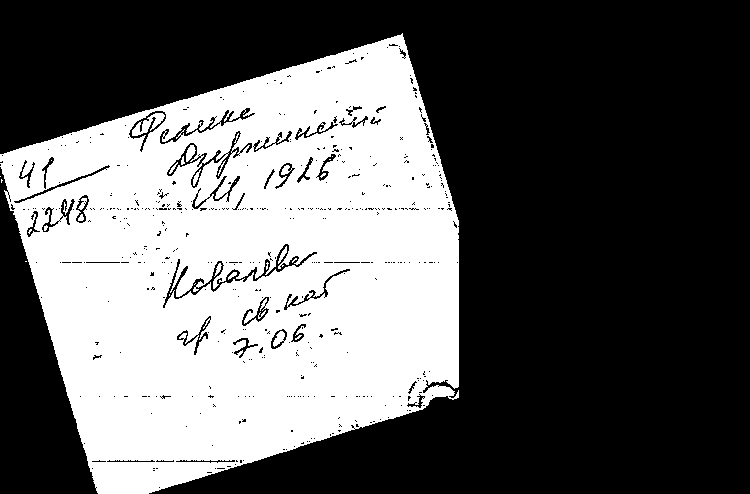 41
2248
Феликс
Дзержинский
М, 1926
Ковалёва
гр. св. кат
7.06.